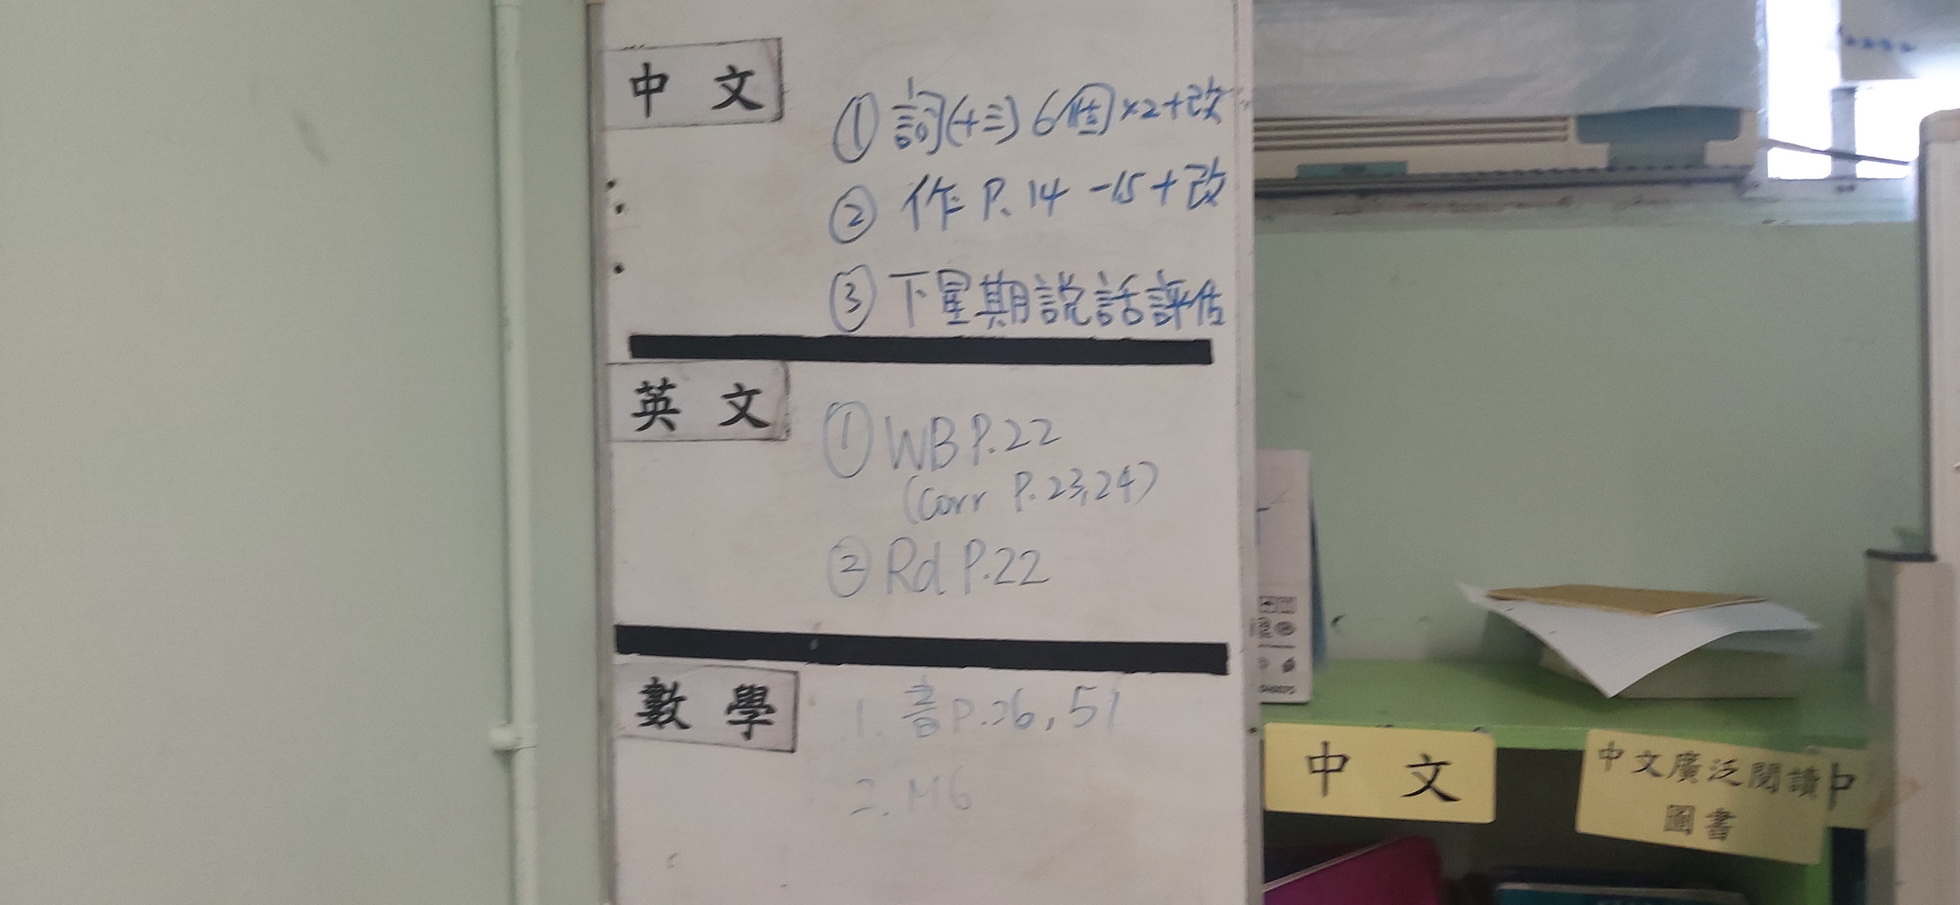 中文
① 詞(十三) 6個×2+改
② 作 P.14-15+改
③ 下星期說話評估
英文
① WB P.22
(Corr P.23,24)
② Rd P.22
數學
1. 書P.26,51
2. M6
中文
中文廣泛閱讀
圖書
中